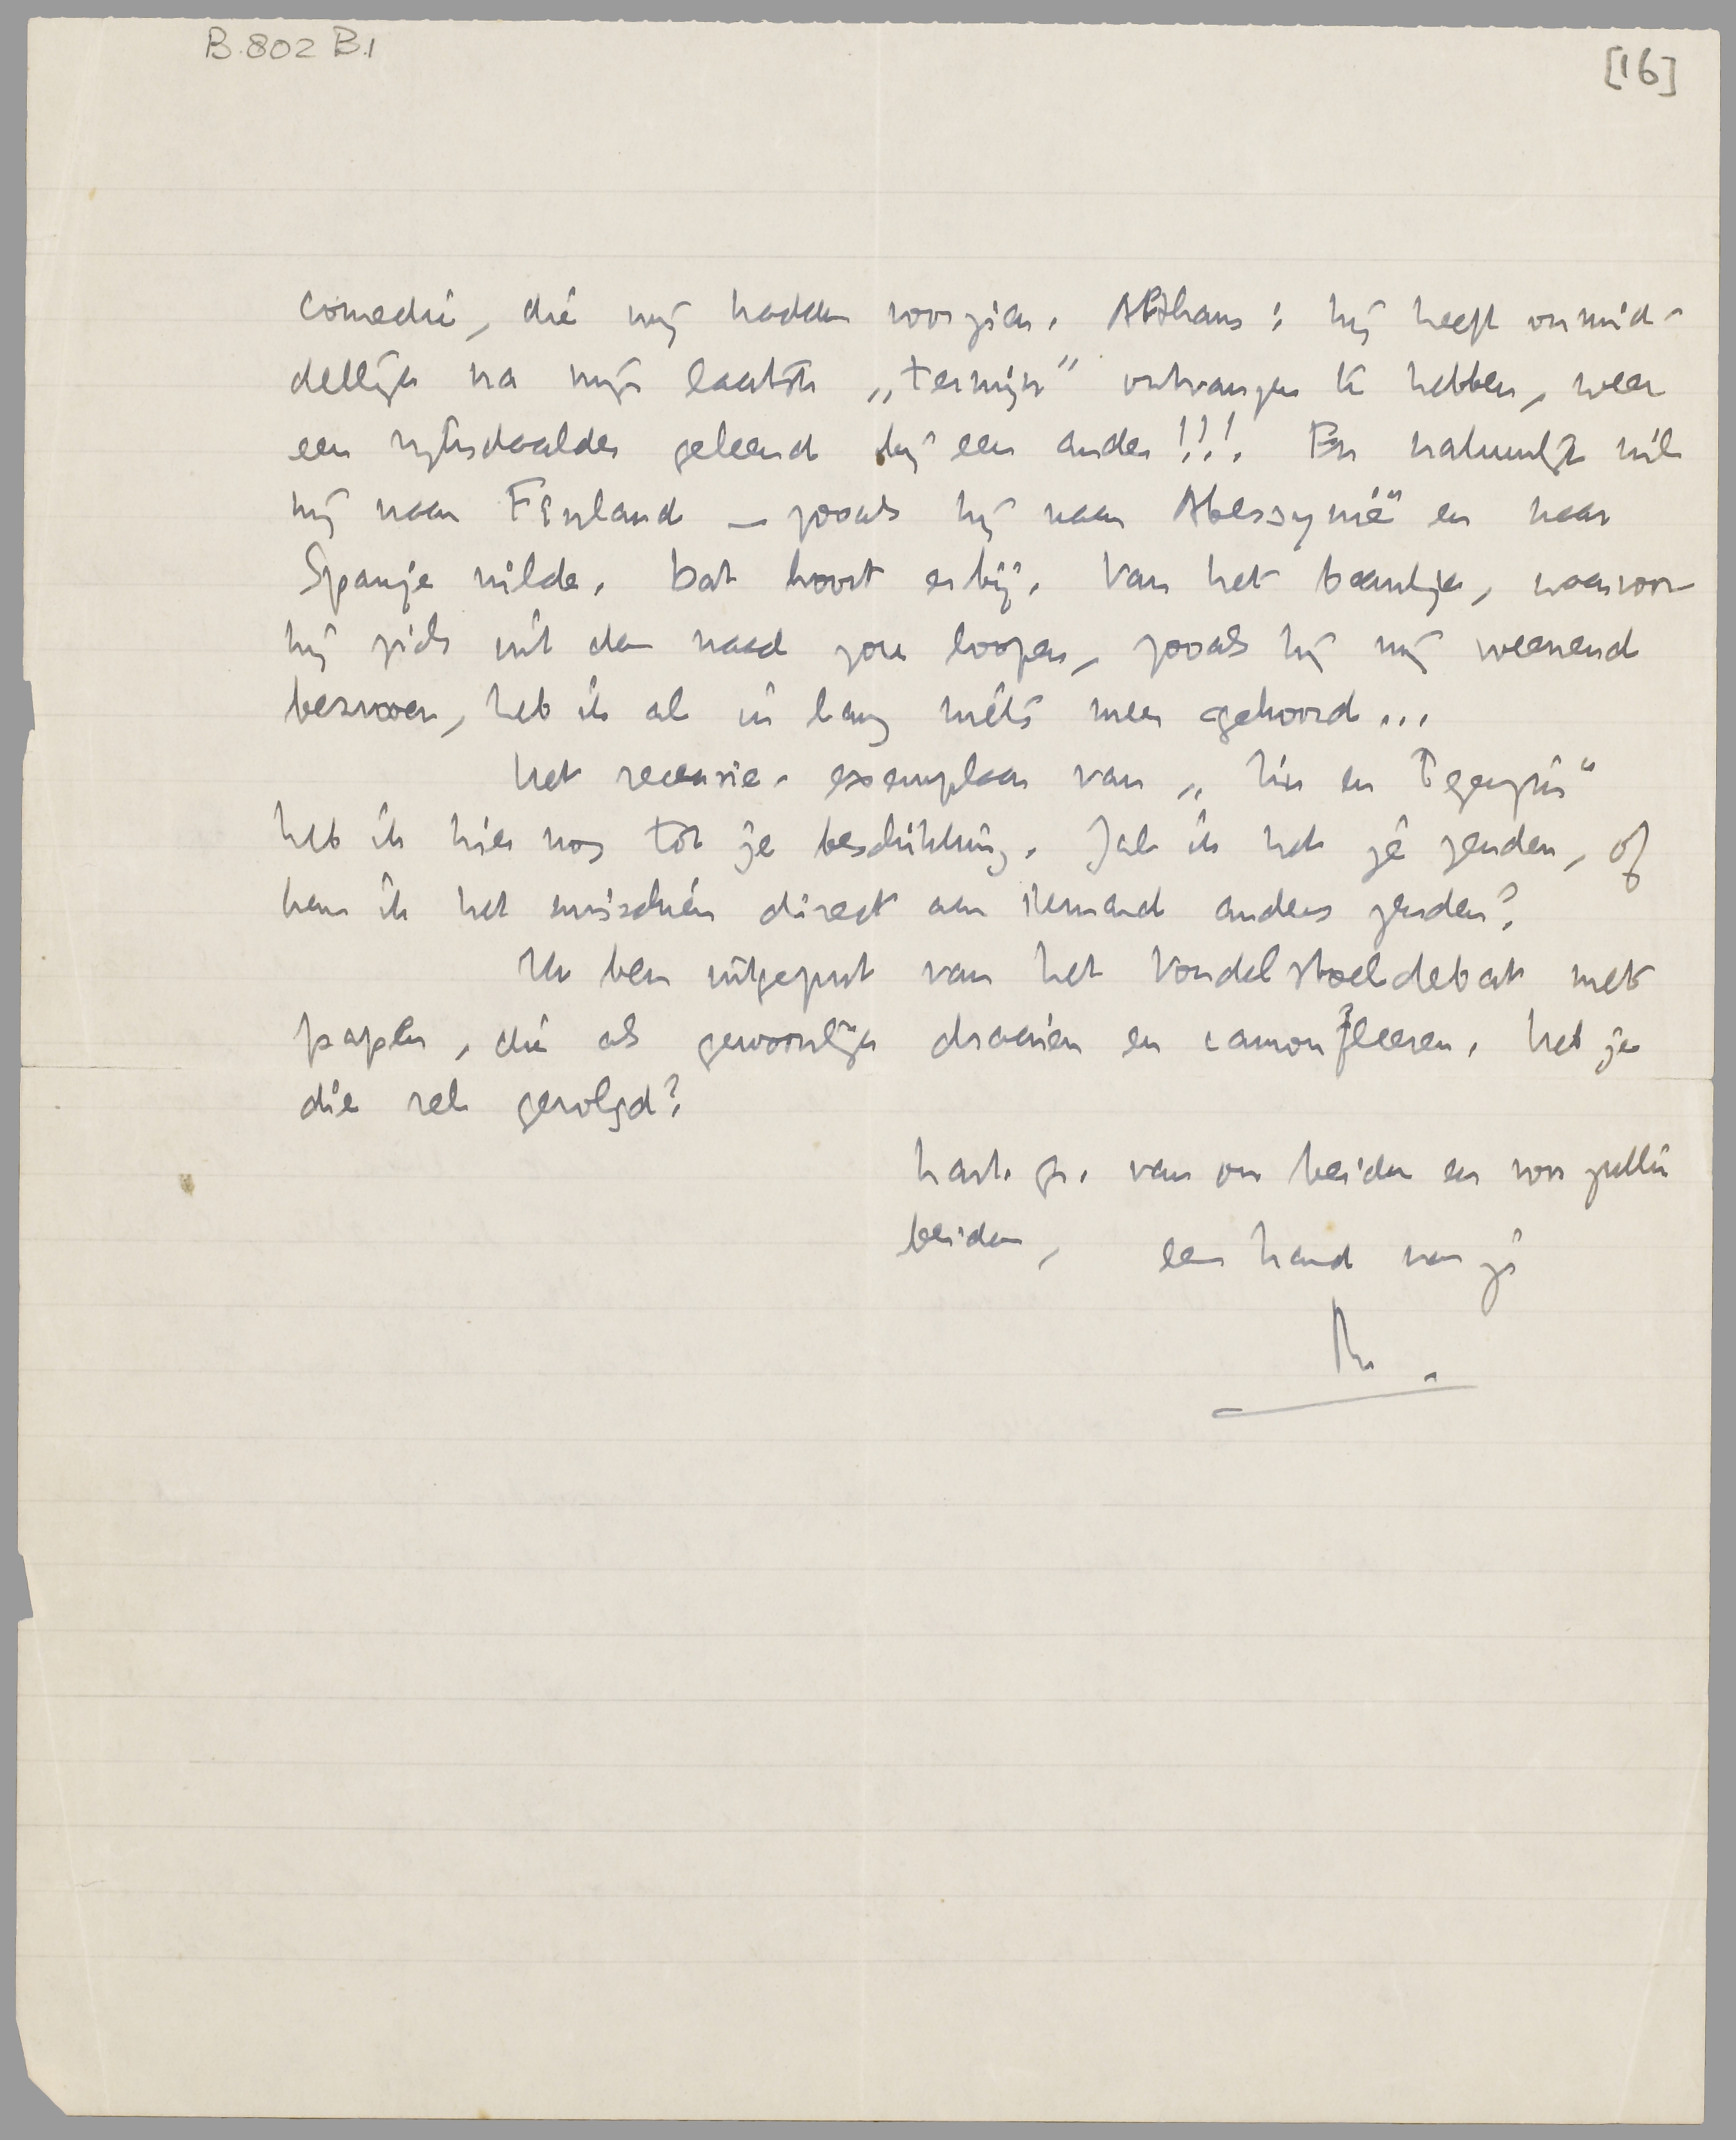 B.802 B.1
[16]
comedie, die wij hadden voorzien. Althans: hij heeft onmid-
dellijk na mijn laatste „termijn” ontvangen te hebben, weer
een rijksdaalder geleend bij een ander!!! En natuurlijk wil
hij naar Finland — zooals hij naar Abessynië en naar
Spanje wilde. Dat hoort erbij. Van het baantje, waarvoor
hij zich uit den naad zou loopen, zooals hij mij weenend
bezwoer, heb ik al in lang niets meer gehoord...
Het recensie-exemplaar van „Hier en Tegenzin”
heb ik hier nog tot je beschikking. Zal ik het je zenden, of
kan ik het misschien direct aan iemand anders zenden?
Ik ben uitgeput van het Vondelstoeldebat met
papen, die als gewoonlijk draaien en camoufleeren. Heb je
die rel gevolgd?
Hart. gr. van ons beiden en voor jullie
beiden, een hand van je